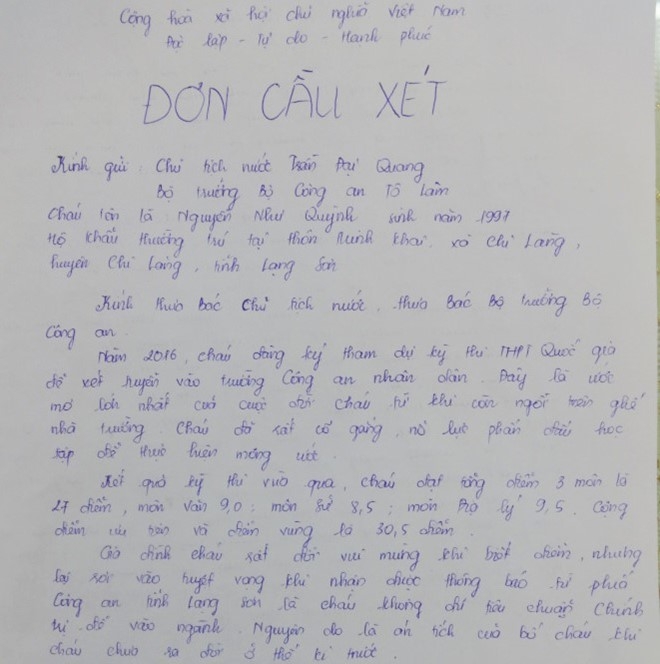 Cộng hoà xã hội chủ nghĩa Việt Nam
Độc lập - Tự do - Hạnh phúc
ĐƠN CẦU XÉT
Kính gửi : Chủ tịch nước Trần Đại Quang
Bộ trưởng Bộ Công an Tô Lâm
Cháu tên là Nguyễn Như Quỳnh sinh năm 1997
Hộ khẩu thường trú tại thôn Minh Khai, xã Chi Lăng,
huyện Chi Lăng, tỉnh Lạng Sơn
Kính thưa Bác Chủ tịch nước, thưa Bác Bộ trưởng Bộ
Công an.
Năm 2016, cháu đăng ký tham dự kỳ thi THPT Quốc gia
để xét tuyển vào trường Công an nhân dân. Đây là ước
mơ lớn nhất của cuộc đời cháu từ khi còn ngồi trên ghế
nhà trường. Cháu đã rất cố gắng, nỗ lực phấn đấu học
tập để thực hiện mong ước.
Kết quả kỳ thi vừa qua, cháu đạt tổng điểm 3 môn là
27 điểm, môn văn 9,0; môn Sử 8,5; môn Địa lý 9,5. Cộng
điểm ưu tiên và điểm vùng là 30,5 điểm.
Gia đình cháu rất đỗi vui mừng khi biết điểm, nhưng
lại rơi vào tuyệt vọng khi nhận được thông báo từ phía
Công an tỉnh Lạng Sơn là cháu không đủ tiêu chuẩn Chính
trị để vào ngành. Nguyên do là án tích của bố cháu khi
cháu chưa ra đời ở thế kỉ trước.